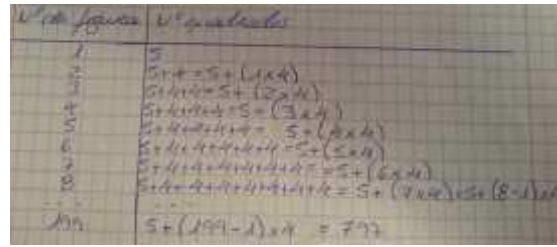 Nº de figuras Nº quadrados
1 5
2 5+4 = 5+(1×4)
3 5+4+4 = 5+(2×4)
4 5+4+4+4 = 5+(3×4)
5 5+4+4+4+4 = 5+(4×4)
6 5+4+4+4+4+4 = 5+(5×4)
7 5+4+4+4+4+4+4 = 5+(6×4)
8 5+4+4+4+4+4+4+4 = 5+(7×4) = 5+(8-1)×4
199 5+(199-1)×4 = 797